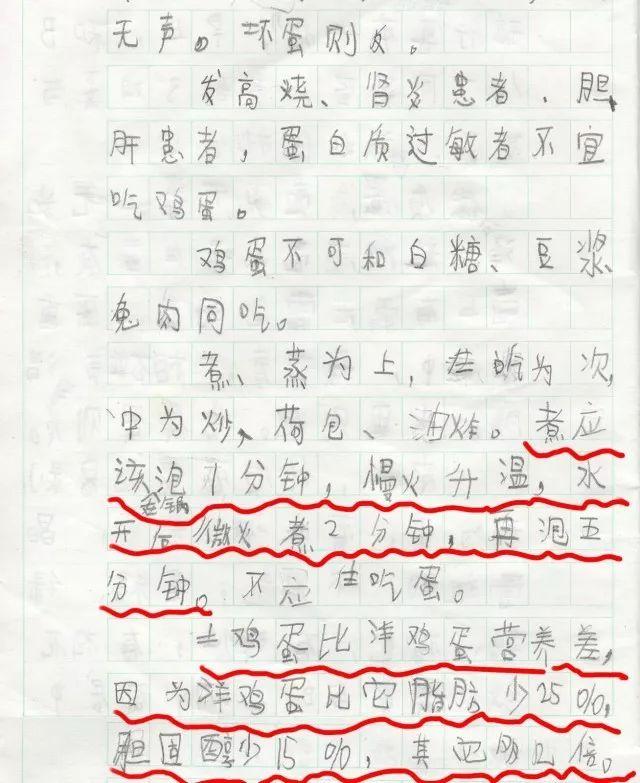 无声。坏蛋则反。
发高烧、肾炎患者、胆
肝患者，蛋白质过敏者不宜
吃鸡蛋。
鸡蛋不可和白糖、豆浆、
兔肉同吃。
煮、蒸为上，为次，
冲为炒，荷包、油炸。煮应
该泡1分钟，慢火升温，水
开后微火煮2分钟，再泡五
分钟。不应生吃蛋。
土鸡蛋比洋鸡蛋营养差，
因为洋鸡蛋比它脂肪少25%，
胆固醇少15%，其倍。